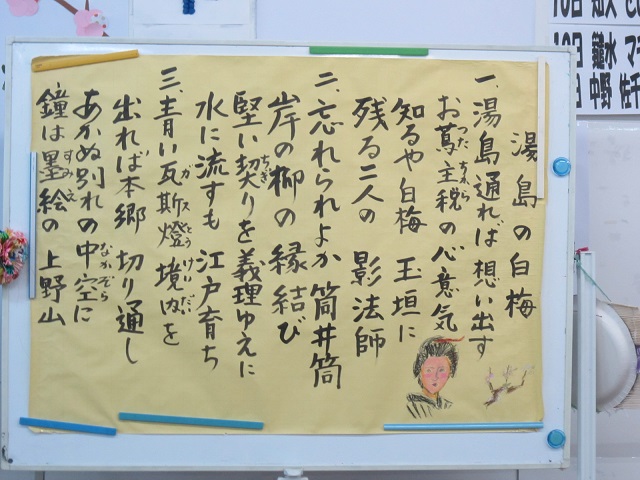 湯島の白梅
一、湯島通れば想い出す
お蔦主税の心意気
つた ちから
知るや白梅 玉垣に
残る二人の 影法師
二、忘れられよか筒井筒
岸の柳の縁結び
堅い契りを義理ゆえに
ちぎ
水に流すも 江戸育ち
三、青い瓦斯燈 境内を
ガス とう けいだい
出れば本郷 切り通し
あかぬ別れの中空に
なかぞら
鐘は墨絵の上野山
すみえ
10日
10日 鑓水 マ
日 中野 佐千